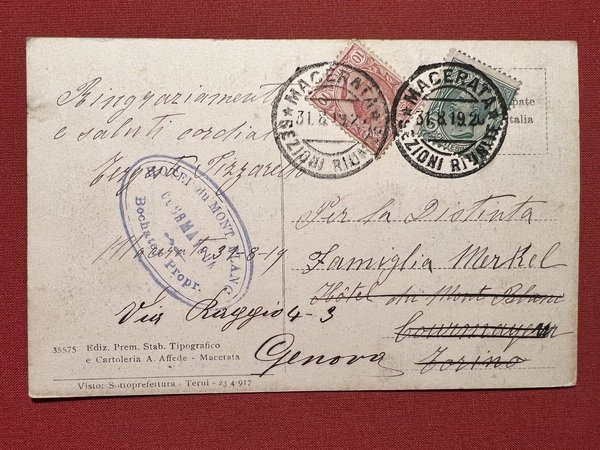 Ringraziamenti
e saluti cordiali
Pizzarello
Macerata 31-8-19
MACERATA
31.8.19.20
SEZIONI RIUNITE
MACERATA
31.8.19.20
SEZIONI RIUNITE
10
pate
Italia
HOTEL du MONT BLANC
COURMAYEUR
Bochatay Propr.
Per la Distinta
Famiglia Merkel
Hôtel du Mont Blanc
Courmayeur
Torino
Via Raggio 4-3
Genova
35575 Ediz. Prem. Stab. Tipografico
e Cartoleria A. Affede - Macerata
Visto: Sottoprefettura - Terni - 23 4-917